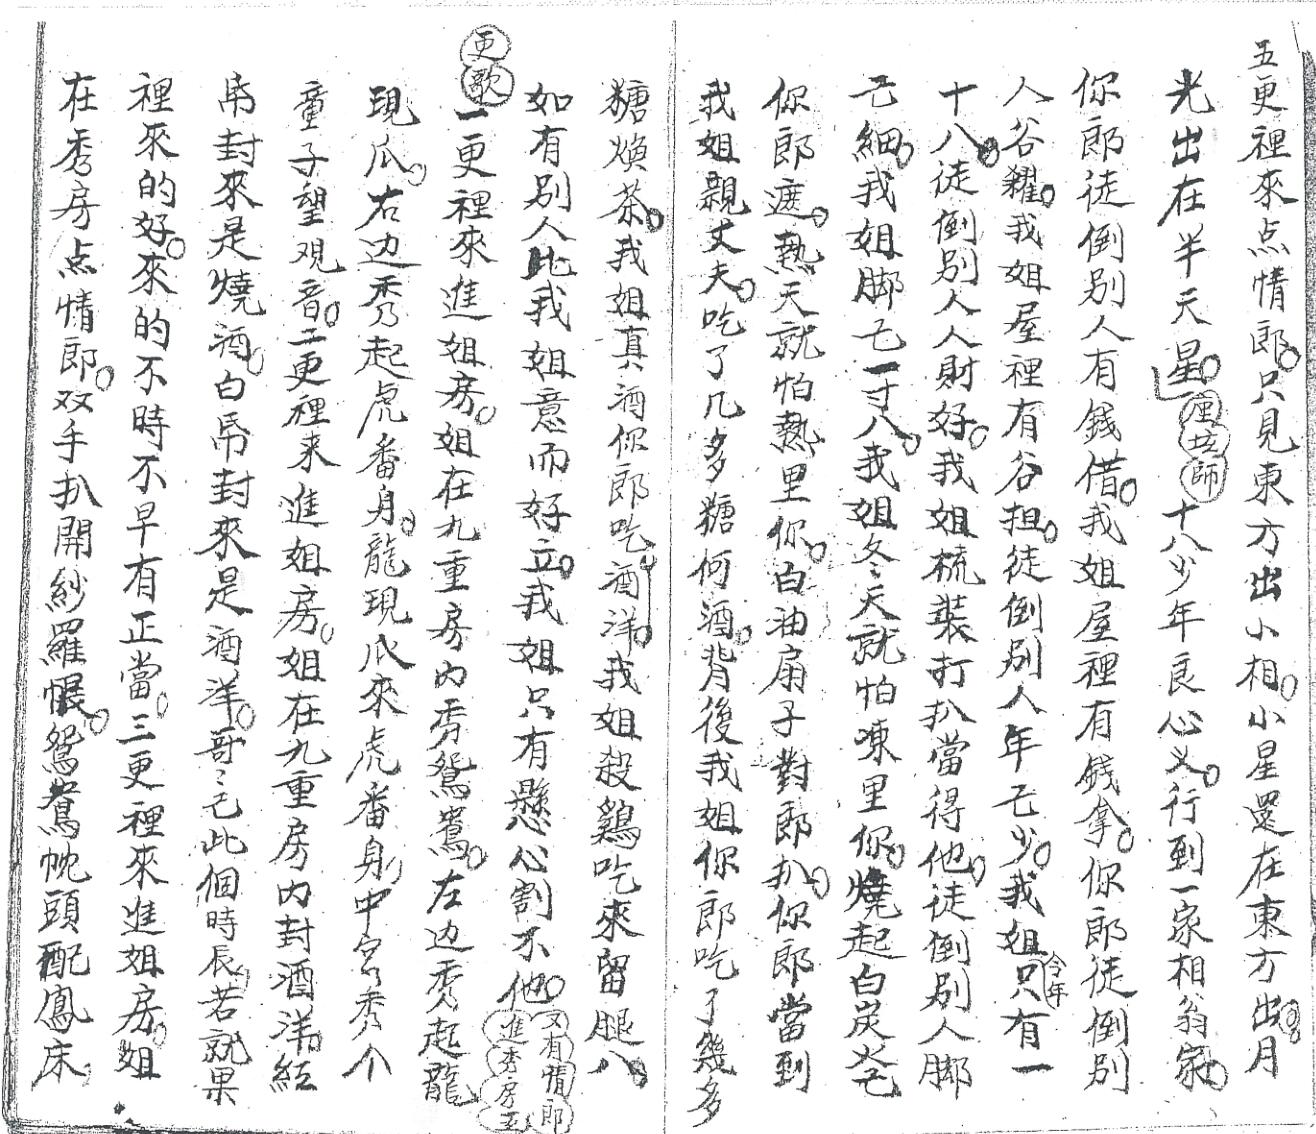 五更裡來点情郎。只見東方出小相。小星還在東方出。月
光出在半天星。厘坟師十八少年良心义。行到一家相翁家。
你郎徒倒别人有錢借。我姐屋裡有錢拿。你郎徒倒别
人谷糴。我姐屋裡有谷担。徒倒别人年乞少。我姐今年只有一
十八。徒倒别人人財好。我姐梳装打扒當得他。徒倒别人脚
乞細。我姐脚乞一寸八。我姐冬天就怕凍里你。燒起白炭火乞
你郎遮。熱天就怕熱里你。白油扇子對郎扒。你郎當到
我姐親丈夫。吃了几多糖何酒。背後我姐你郎吃了幾多
糖煥茶。我姐真酒你郎吃。酒洋。我姐殺鷄吃來留腿八。
如有别人比我姐意而好立。我姐只有懸心割不他。又有情郎進秀房五
更歌一更裡來進姐房。姐在九重房内秀鴛鴦。左边秀起龍
現瓜。右边秀起虎番身。龍現瓜來虎番身。中宫秀个
童子望观音。二更裡来進姐房。姐在九重房内封酒洋。紅
帋封來是燒酒。白帋封來是酒洋。哥哥乞此個時辰。若就果
裡來的好。來的不時不早有正當。三更裡來進姐房。姐
在秀房点情郎。双手扒開紗羅帳。鴛鴦枕頭配鳳床。